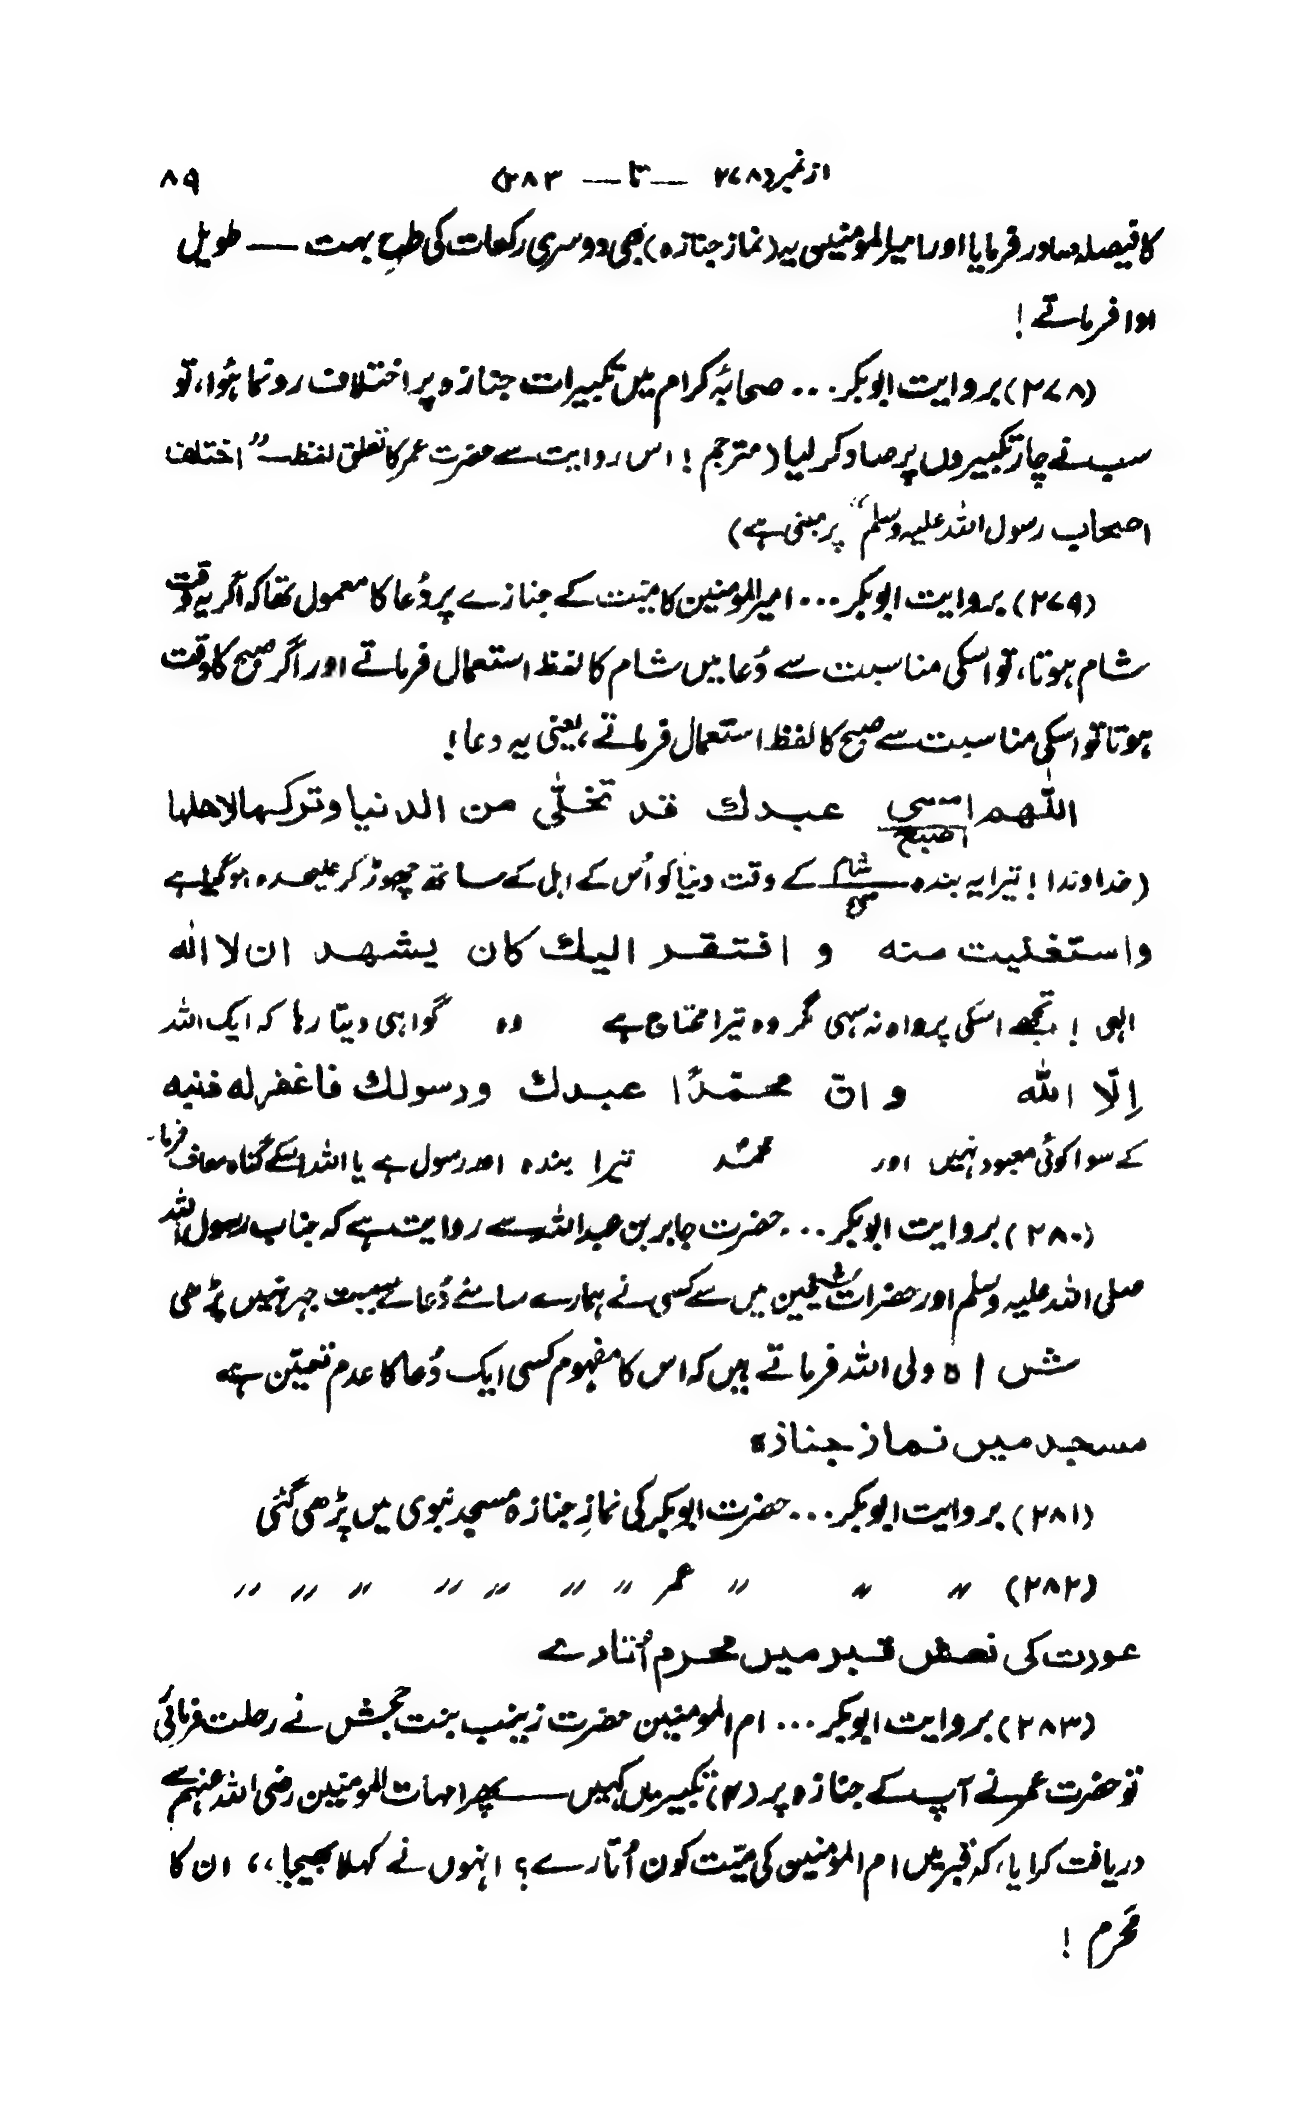 از نمبر (۲۷۸ — تا — ۲۸۳) ۸۹
کا فیصلہ صادر فرمایا اور امیر المومنین یہ (نماز جنازہ) بھی دوسری رکعات کی طرح بہت — طویل
ادا فرماتے !
(۲۷۸) بروایت ابوبکر ... صحابۂ کرام میں تکبیرات جنازہ پر اختلاف رونما ہُوا، تو
سب نے چار تکبیروں پر صاد کر لیا (مترجم ! اس روایت سے حضرت عمر کا تعلق لفظ — ”اختلف
اصحاب رسول اللہ علیہ وسلم“ پر مبنی ہے)
(۲۷۹) بروایت ابوبکر ... امیر المومنین کا میّت کے جنازے پر دُعا کا معمول تھا کہ اگر یہ وقت
شام ہوتا، تو اسکی مناسبت سے دُعا میں شام کا لفظ استعمال فرماتے اور اگر صبح کا وقت
ہوتا تو اسکی مناسبت سے صبح کا لفظ استعمال فرماتے، یعنی یہ دعا !
اللّٰھم امسی عبدك قد تخلّٰی من الدنیا وترکھا لاھلھا
اصبح
(خداوندا ! تیرا یہ بندہ شام کے وقت دنیا کو اُس کے اہل کے ساتھ چھوڑ کر علیحدہ ہو گیا ہے
صبح
واستغنیت منه و افتقر الیك کان یشھد ان لا اله
الہی ! تجھے اسکی پرواہ نہ سہی مگر وہ تیرا محتاج ہے وہ گواہی دیتا رہا کہ ایک اللہ
اِلّا اللّٰه و انّ محمّدًا عبدك ورسولك فاغفر له ذنبه
کے سوا کوئی معبود نہیں اور محمّد تیرا بندہ اور رسول ہے یا اللہ اسکے گناہ معاف فرما۔
(۲۸۰) بروایت ابوبکر ... حضرت جابر بن عبداللہ سے روایت ہے کہ جناب رسول اللہ
صلی اللہ علیہ وسلم اور حضرات شیخین میں سے کسی نے ہمارے سامنے دُعائے میّت جہر نہیں پڑھی
شاہ ولی اللہ فرماتے ہیں کہ اس کا مفہوم کسی ایک دُعا کا عدم تعیّن ہے
مسجد میں نماز جنازہ
(۲۸۱) بروایت ابوبکر ... حضرت ابوبکر کی نمازِ جنازہ مسجد نبوی میں پڑھی گئی
(۲۸۲) 〃 〃 〃 عمر 〃 〃 〃 〃 〃 〃 〃
عورت کی نعش قبر میں محرم اُتارے
(۲۸۳) بروایت ابوبکر ... ام المومنین حضرت زینب بنت حجش نے رحلت فرمائی
تو حضرت عمر نے آپ کے جنازہ پر (۴) تکبیریں کہیں — پھر امہات المومنین رضی اللہ عنہم سے
دریافت کرایا، کہ قبر میں ام المومنین کی میّت کون اُتارے؟ انہوں نے کہلا بھیجا،، ان کا
مَحرم !